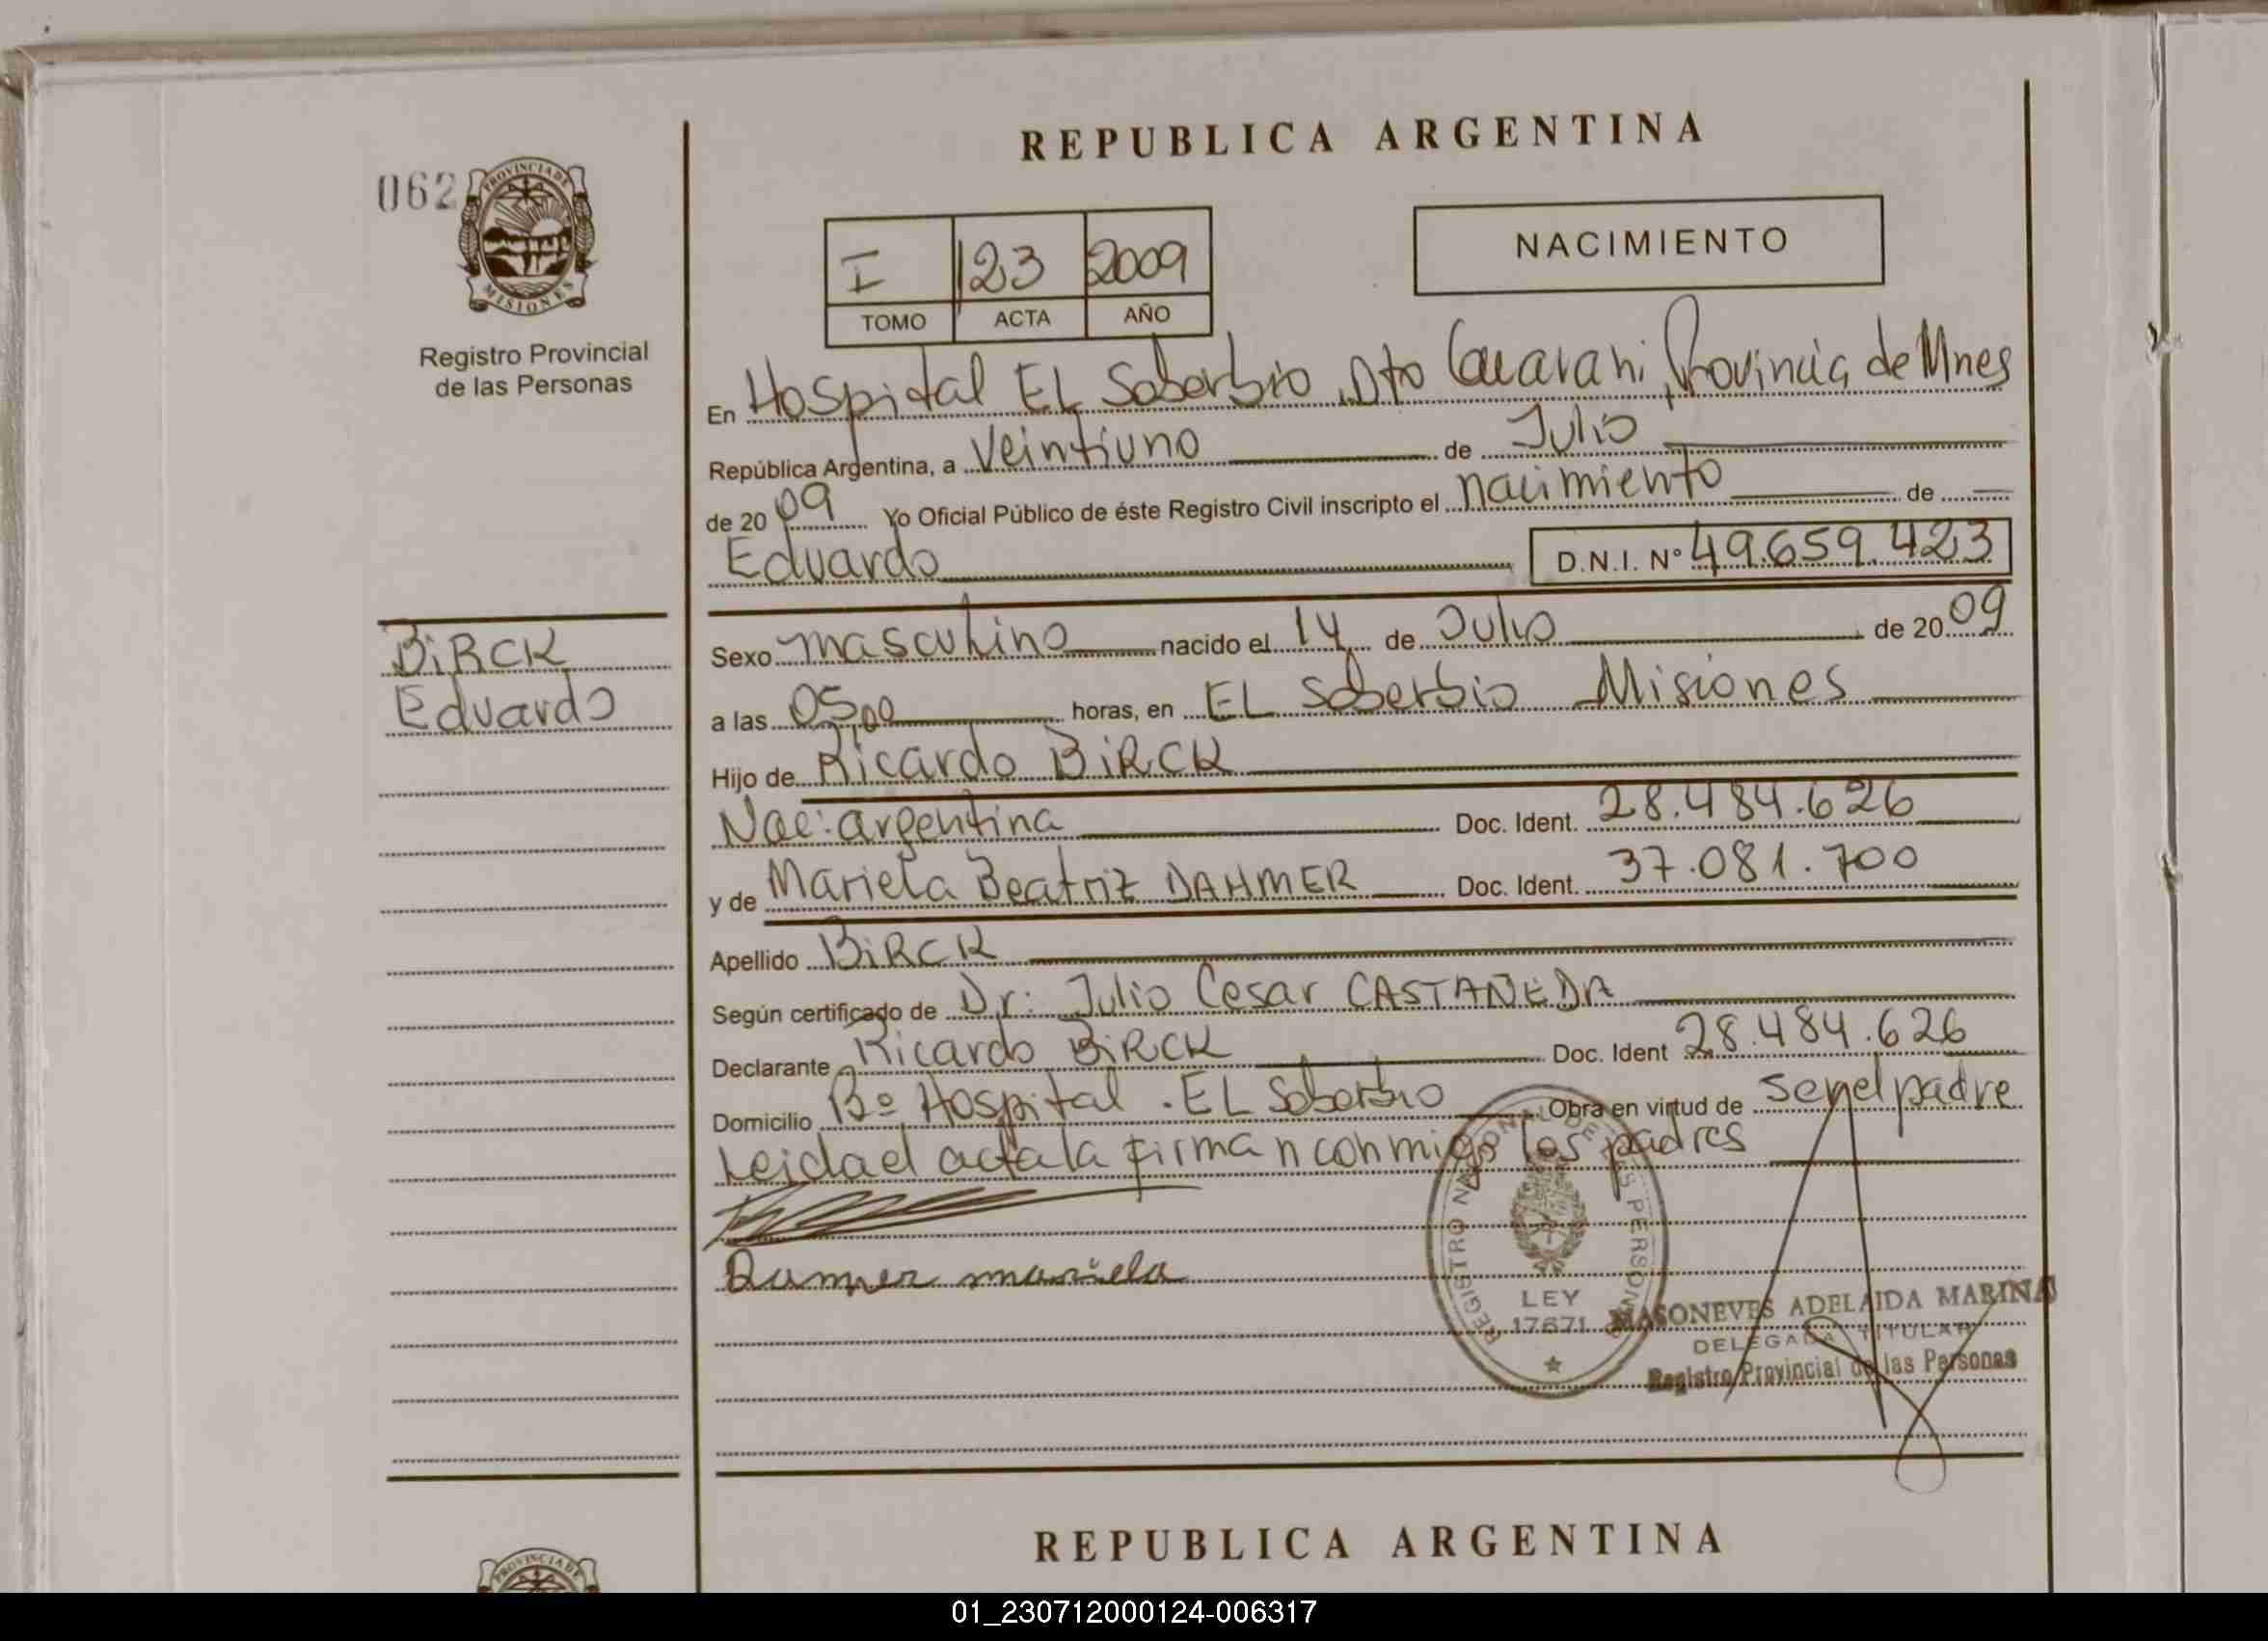 REPUBLICA ARGENTINA
062
PROVINCIA DE
MISIONES
Registro Provincial
de las Personas
I 123 2009
TOMO ACTA AÑO
NACIMIENTO
En Hospital EL Soberbio, Dto Guarani, Provincia de Mnes
República Argentina, a Veintiuno de Julio
de 2009 Yo Oficial Público de éste Registro Civil inscripto el nacimiento de
Eduardo D.N.I. Nº 49.659.423
BiRCK
Eduardo
Sexo masculino nacido el 14 de Julio de 2009
a las 0500 horas, en EL Soberbio Misiones
Hijo de Ricardo BiRCK
Nac: argentina Doc. Ident. 28.484.626
y de Mariela Beatriz DAHMER Doc. Ident. 37.081.700
Apellido BiRCK
Según certificado de Dr: Julio Cesar CASTAÑEDA
Declarante Ricardo BiRCK Doc. Ident 28.484.626
Domicilio Bº Hospital . EL Soberbio Obra en virtud de ser el padre
Leida el acta la firman conmigo los padres
Damer mariela
REGISTRO NACIONAL DE LAS PERSONAS
LEY
17671
MASONEVES ADELAIDA MARINA
DELEGADA TITULAR
Registro Provincial de las Personas
REPUBLICA ARGENTINA
PROVINCIA DE
01_230712000124-006317